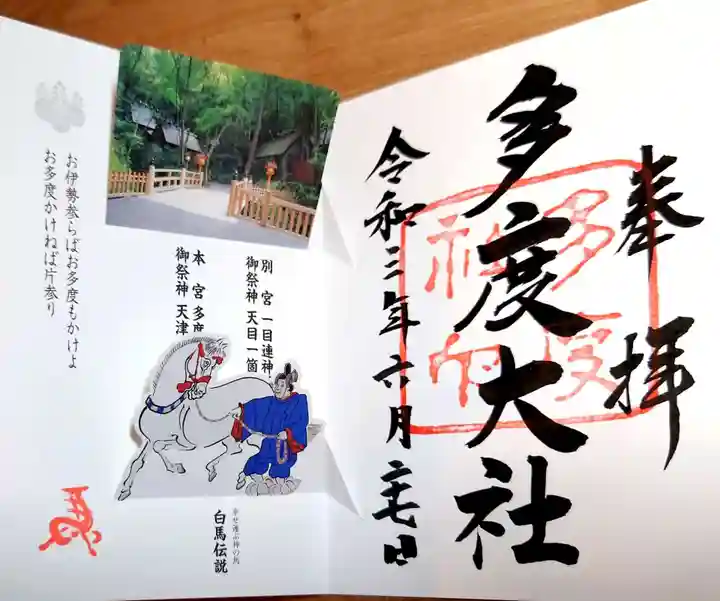 奉拝
多度大社
令和三年六月二十七日
多度
神社
別 宮 一目連神
御祭神 天目一箇
本 宮 多度
御祭神 天津
お伊勢参らばお多度もかけよ
お多度かけねば片参り
幸せ運ぶ神の馬
白馬伝説
馬